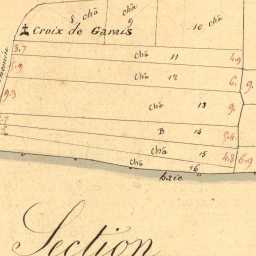 8 chõ
chõ 9
10 chõ
Croix de Garais
5.7 chõ 11 4.9
.9 chõ 12 6. 9.
9.3 chõ 13 9.
B 14 5.4
chõ 15 4.8 6.9
chõ 16
baie
Section